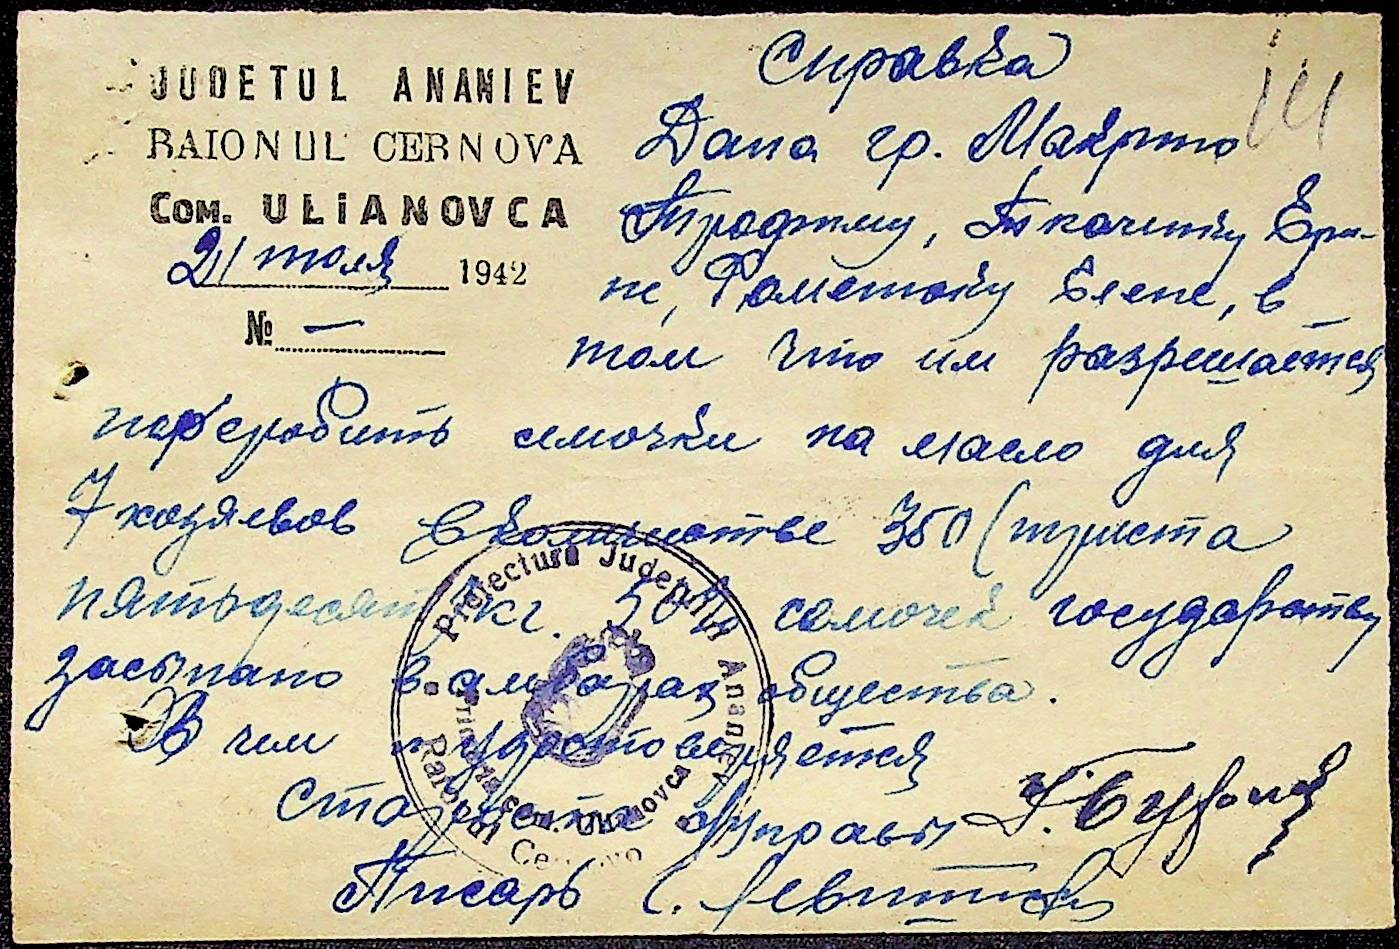 JUDETUL ANANIEV
RAIONUL CERNOVA
Com. ULIANOVCA
21 июля 1942
№ —
Справка
Дана гр. Макрию
Трофиму, Ткачику Ери-
не, Фоменоку Елене, в
том что им разрешается
переробить симочки на масло для
7 хозяьвов в количистве 350 (триста
пятьдесят кг. 50% семочек государству
засыпано в амбарах общества.
В чем и удостоверяется
Староста с/управы
Писарь
Prefectura Judetului Ananiev
Raionul Cernovo
Primaria Com. Ulianovca